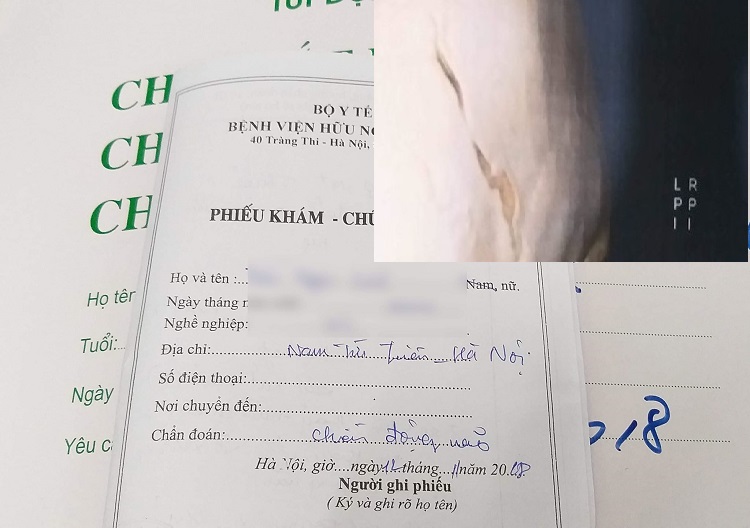 CH
CH
CH
Họ tên
Tuổi:
Ngày
Yêu c
BỘ Y TẾ
BỆNH VIỆN HỮU NG
40 Tràng Thi - Hà Nội,
PHIẾU KHÁM - CHỨ
Họ và tên :... Nam, nữ.
Ngày tháng
Nghề nghiệp:
Địa chỉ: Nam Từ Liêm - Hà Nội
Số điện thoại:
Nơi chuyển đến:
Chẩn đoán: chấn động não
Hà Nội, giờ....ngày 12 tháng 11 năm 2018
Người ghi phiếu
( Ký và ghi rõ họ tên)
L R
P P
I I
18